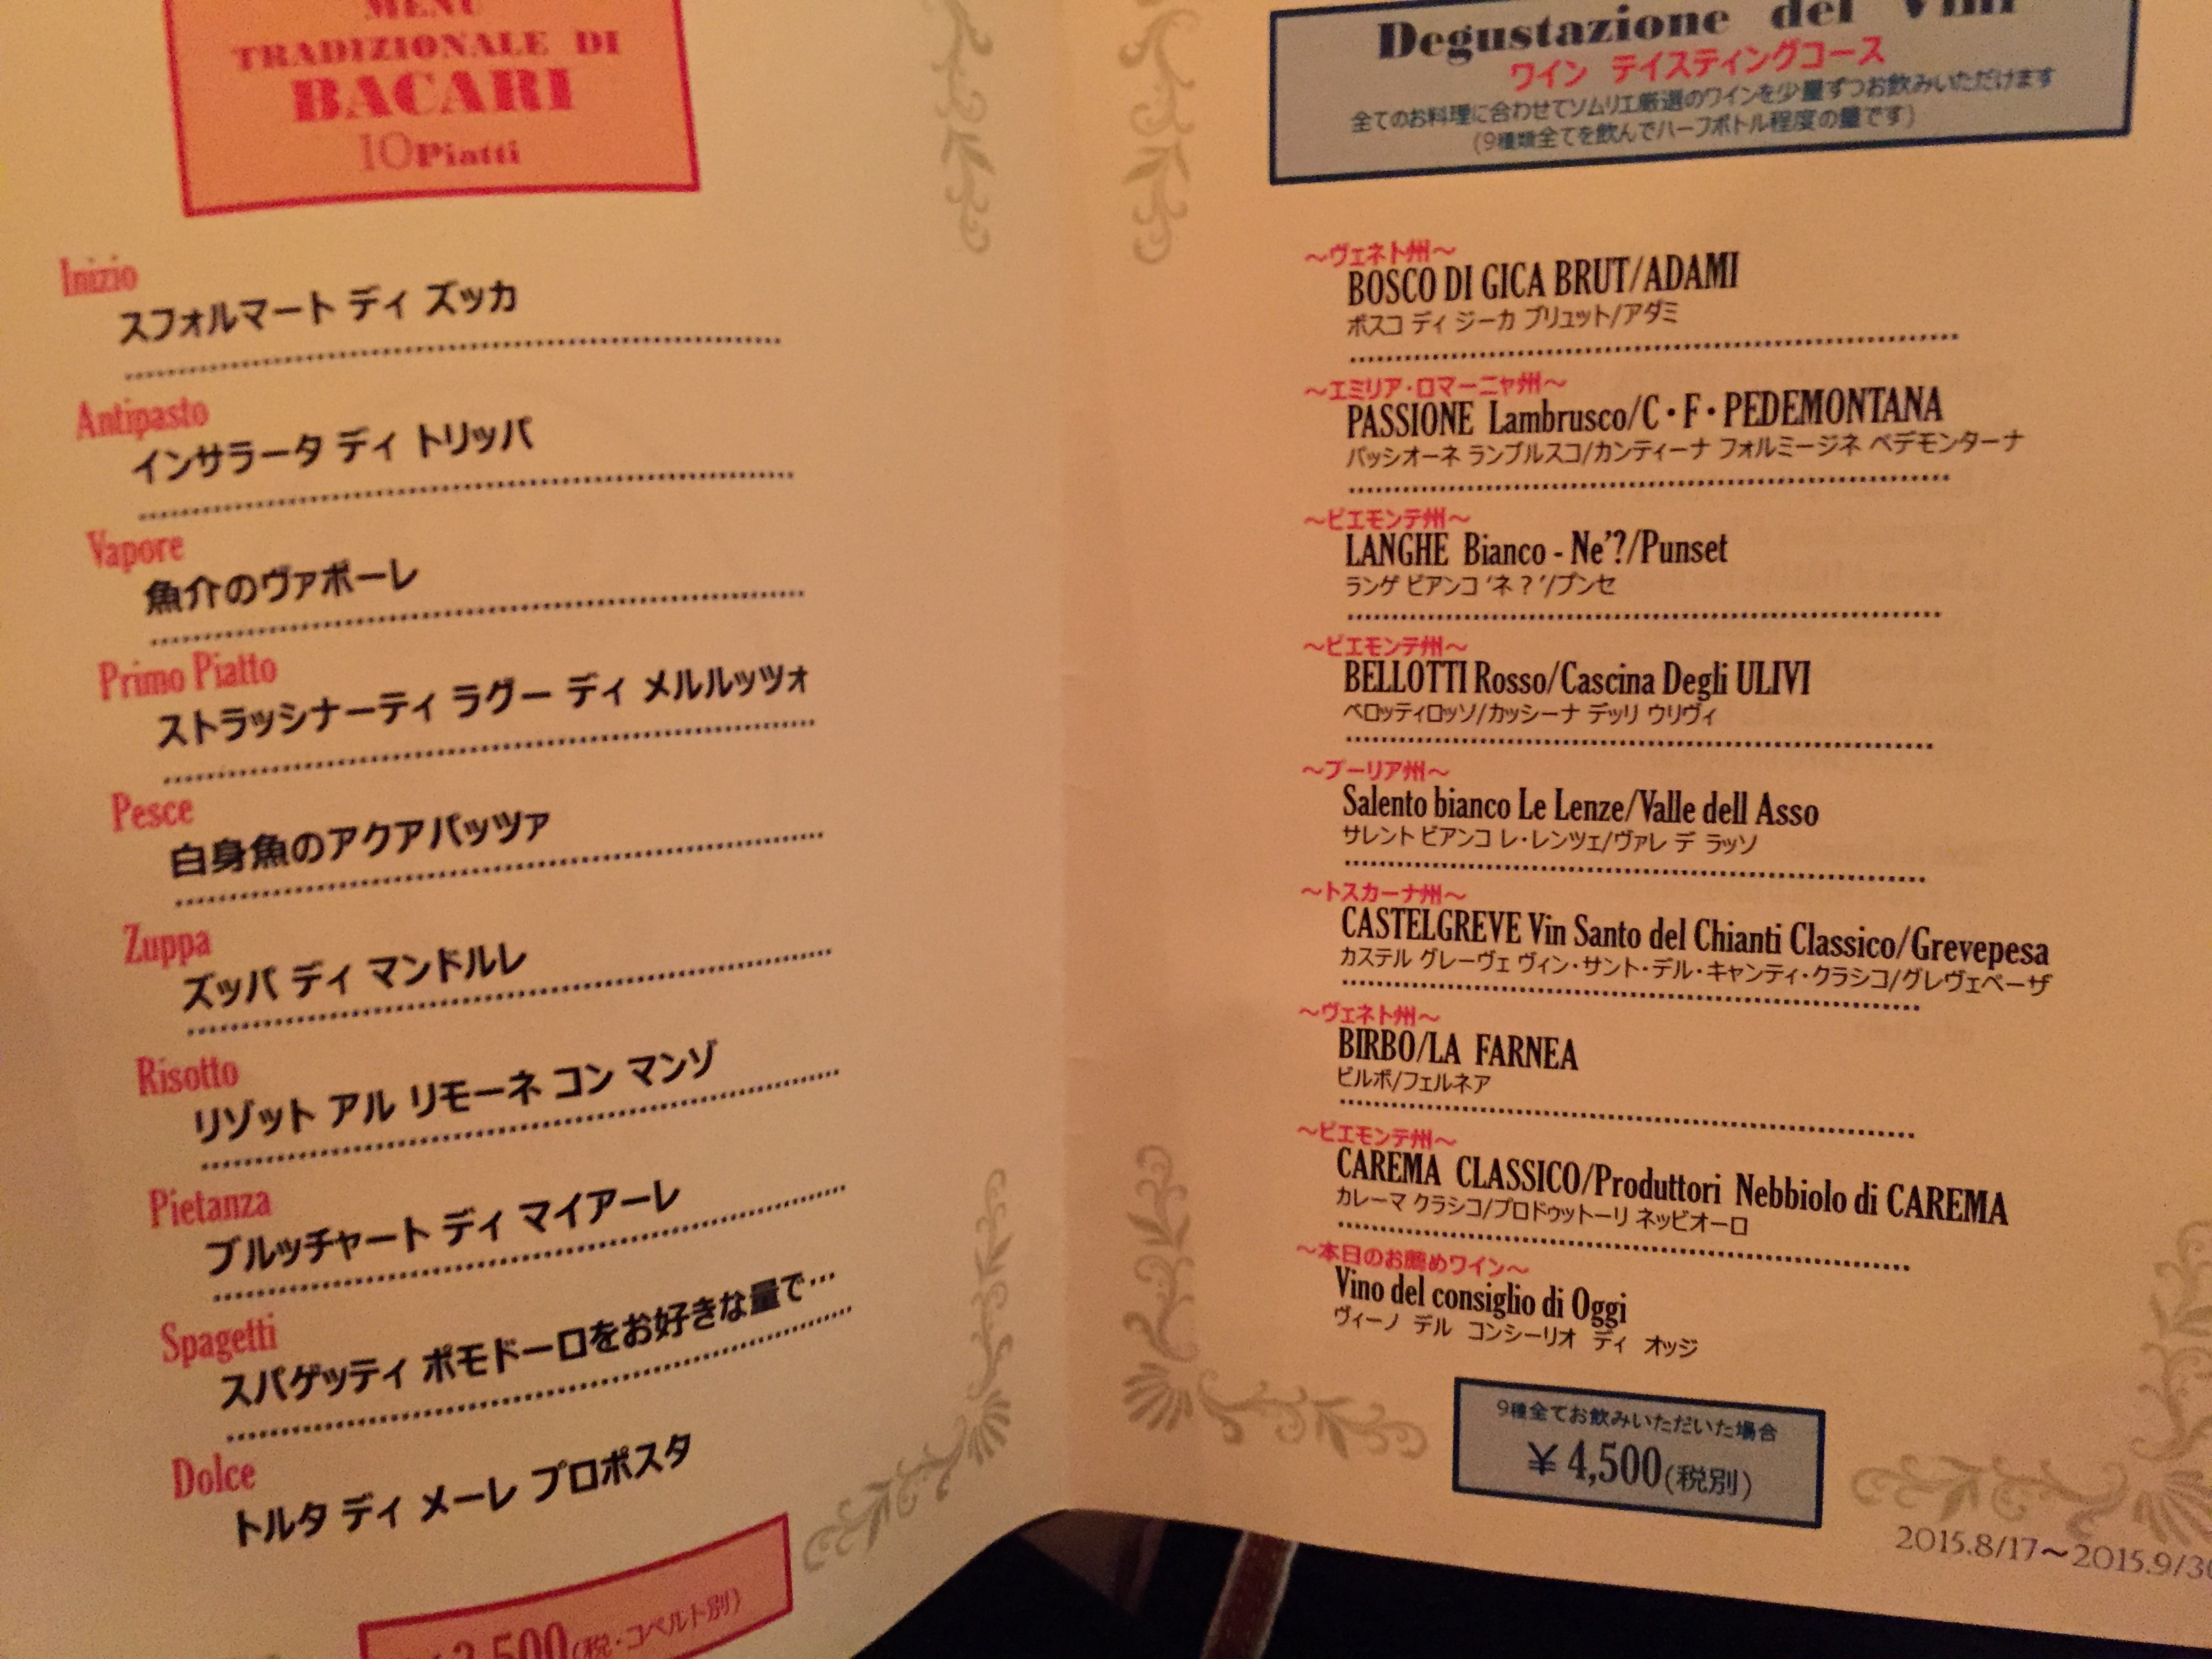 MENU
TRADIZIONALE DI
BACARI
10Piatti
Inizio
スフォルマート ディ ズッカ
Antipasto
インサラータ ディ トリッパ
Vapore
魚介のヴァポーレ
Primo Piatto
ストラッシナーティ ラグー ディ メルルッツォ
Pesce
白身魚のアクアパッツァ
Zuppa
ズッパ ディ マンドルレ
Risotto
リゾット アル リモーネ コン マンゾ
Pietanza
ブルッチャート ディ マイアーレ
Spagetti
スパゲッティ ポモドーロをお好きな量で…
Dolce
トルタ ディ メーレ プロポスタ
3,500(税・コペルト別)
Degustazione del Vini
ワイン テイスティングコース
全てのお料理に合わせてソムリエ厳選のワインを少量ずつお飲みいただけます
(9種類全てを飲んでハーフボトル程度の量です)
～ヴェネト州～
BOSCO DI GICA BRUT/ADAMI
ボスコ ディ ジーカ ブリュット/アダミ
～エミリア・ロマーニャ州～
PASSIONE Lambrusco/C・F・PEDEMONTANA
パッシオーネ ランブルスコ/カンティーナ フォルミージネ ペデモンターナ
～ピエモンテ州～
LANGHE Bianco - Ne'?/Punset
ランゲ ビアンコ 'ネ?'/プンセ
～ピエモンテ州～
BELLOTTI Rosso/Cascina Degli ULIVI
ベロッティロッソ/カッシーナ デッリ ウリヴィ
～プーリア州～
Salento bianco Le Lenze/Valle dell Asso
サレント ビアンコ レ・レンツェ/ヴァレ デ ラッソ
～トスカーナ州～
CASTELGREVE Vin Santo del Chianti Classico/Grevepesa
カステル グレーヴェ ヴィン・サント・デル・キャンティ・クラシコ/グレヴェペーザ
～ヴェネト州～
BIRBO/LA FARNEA
ビルボ/フェルネア
～ピエモンテ州～
CAREMA CLASSICO/Produttori Nebbiolo di CAREMA
カレーマ クラシコ/プロドゥットーリ ネッビオーロ
～本日のお薦めワイン～
Vino del consiglio di Oggi
ヴィーノ デル コンシーリオ ディ オッジ
9種全てお飲みいただいた場合
￥4,500(税別)
2015.8/17～2015.9/30